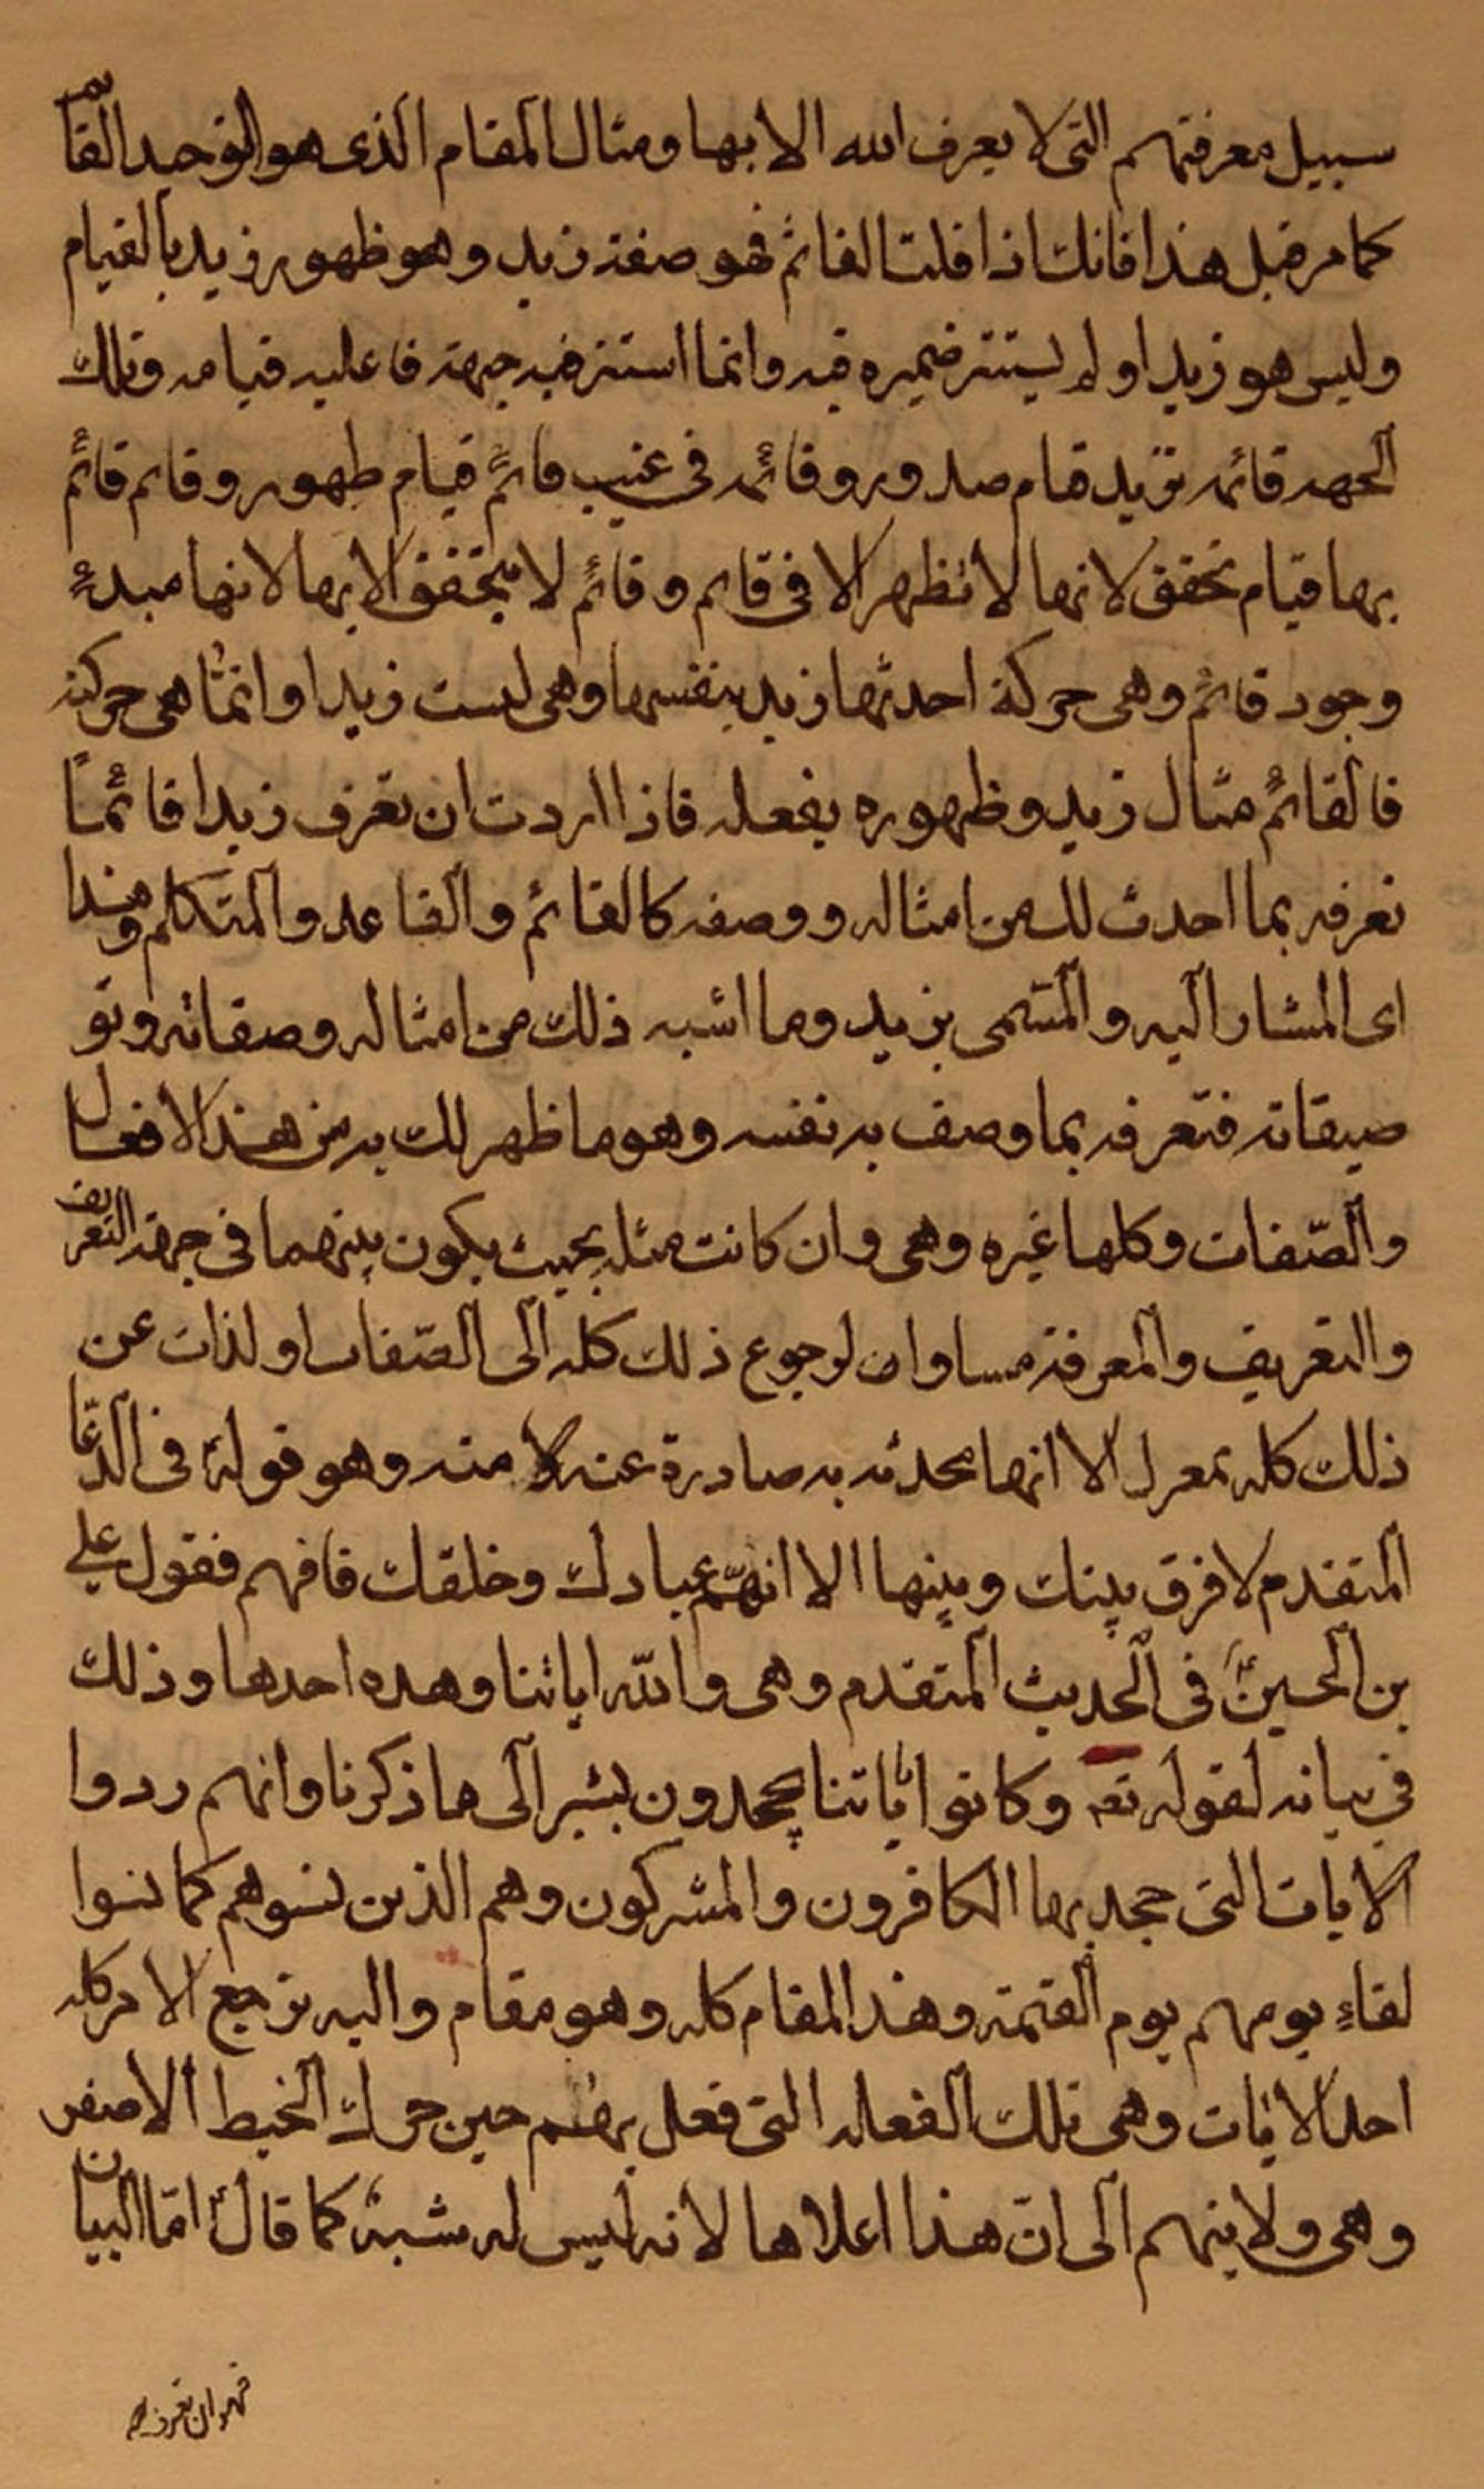 سبيل معرفتهم التى لا يعرف الله الا بها ومثال المقام الذى هو التوحيد القائم
كما مر قبل هذا فانك اذا قلت القائم فهو صفة زيد وهو ظهور زيد بالقيام
وليس هو زيدا ولم يستتر ضميره فيه وانما استتر فيه جهة فاعليه قيامه وتلك
الجهه قائمه بزيد قيام صدور وقائمه فى غيب قائم قيام ظهور وقائم قائم
بها قيام تحقق لانها لا تظهر الا فى قائم وقائم لا يتحقق الا بها لانها مبدء
وجود قائم وهى حركة احدثها زيد بنفسها وهى ليست زيدا وانما هى حركته
فالقائم مثال زيد وظهوره بفعله فاذا اردت ان تعرف زيدا فائمًا
تعرفه بما احدث لك من امثاله ووصفه كالقائم والقاعد والمتكلم وهذا
اى المشار اليه والمسمى بزيد وما اشبه ذلك من امثاله وصفاته وتو
صيفاته فتعرفه بما وصف به نفسه وهو ما ظهر لك به من هذه الافعال
والصّفات وكلها غيره وهى وان كانت مثله بحيث يكون بينهما فى جهة التعريف
والتعريف والمعرفة مساوات لرجوع ذلك كله الى الصّفات اولذات عن
ذلك كله بمعزل الا انها محدثه به صادرة عنه لا منه وهو قوله فى الدّعا
المتقدم لا فرق بينك وبينها الا انهم عبادك وخلقك فافهم فقول على
بن الحسينؑ فى الحديث المتقدم وهى والله اياتنا وهذه احدها وذلك
فى بيانه لقوله تعه وكانوا باياتنا يجحدون يشير الى ما ذكرنا وانهم ردوا
الايات التى جحد بها الكافرون والمشركون وهم الذين نسوهم كما نسوا
لقاءِ يومهم يوم القيمة وهذا المقام كله وهو مقام واليه ترجع الامر كله
احد الايات وهى تلك الفعله التى فعل بهم حين حرك الخيط الاصفر
وهى ولايتهم الى ان هذا اعلاها لانه ليس له شبه كما قال امّا البيان
فهو ان تعرف